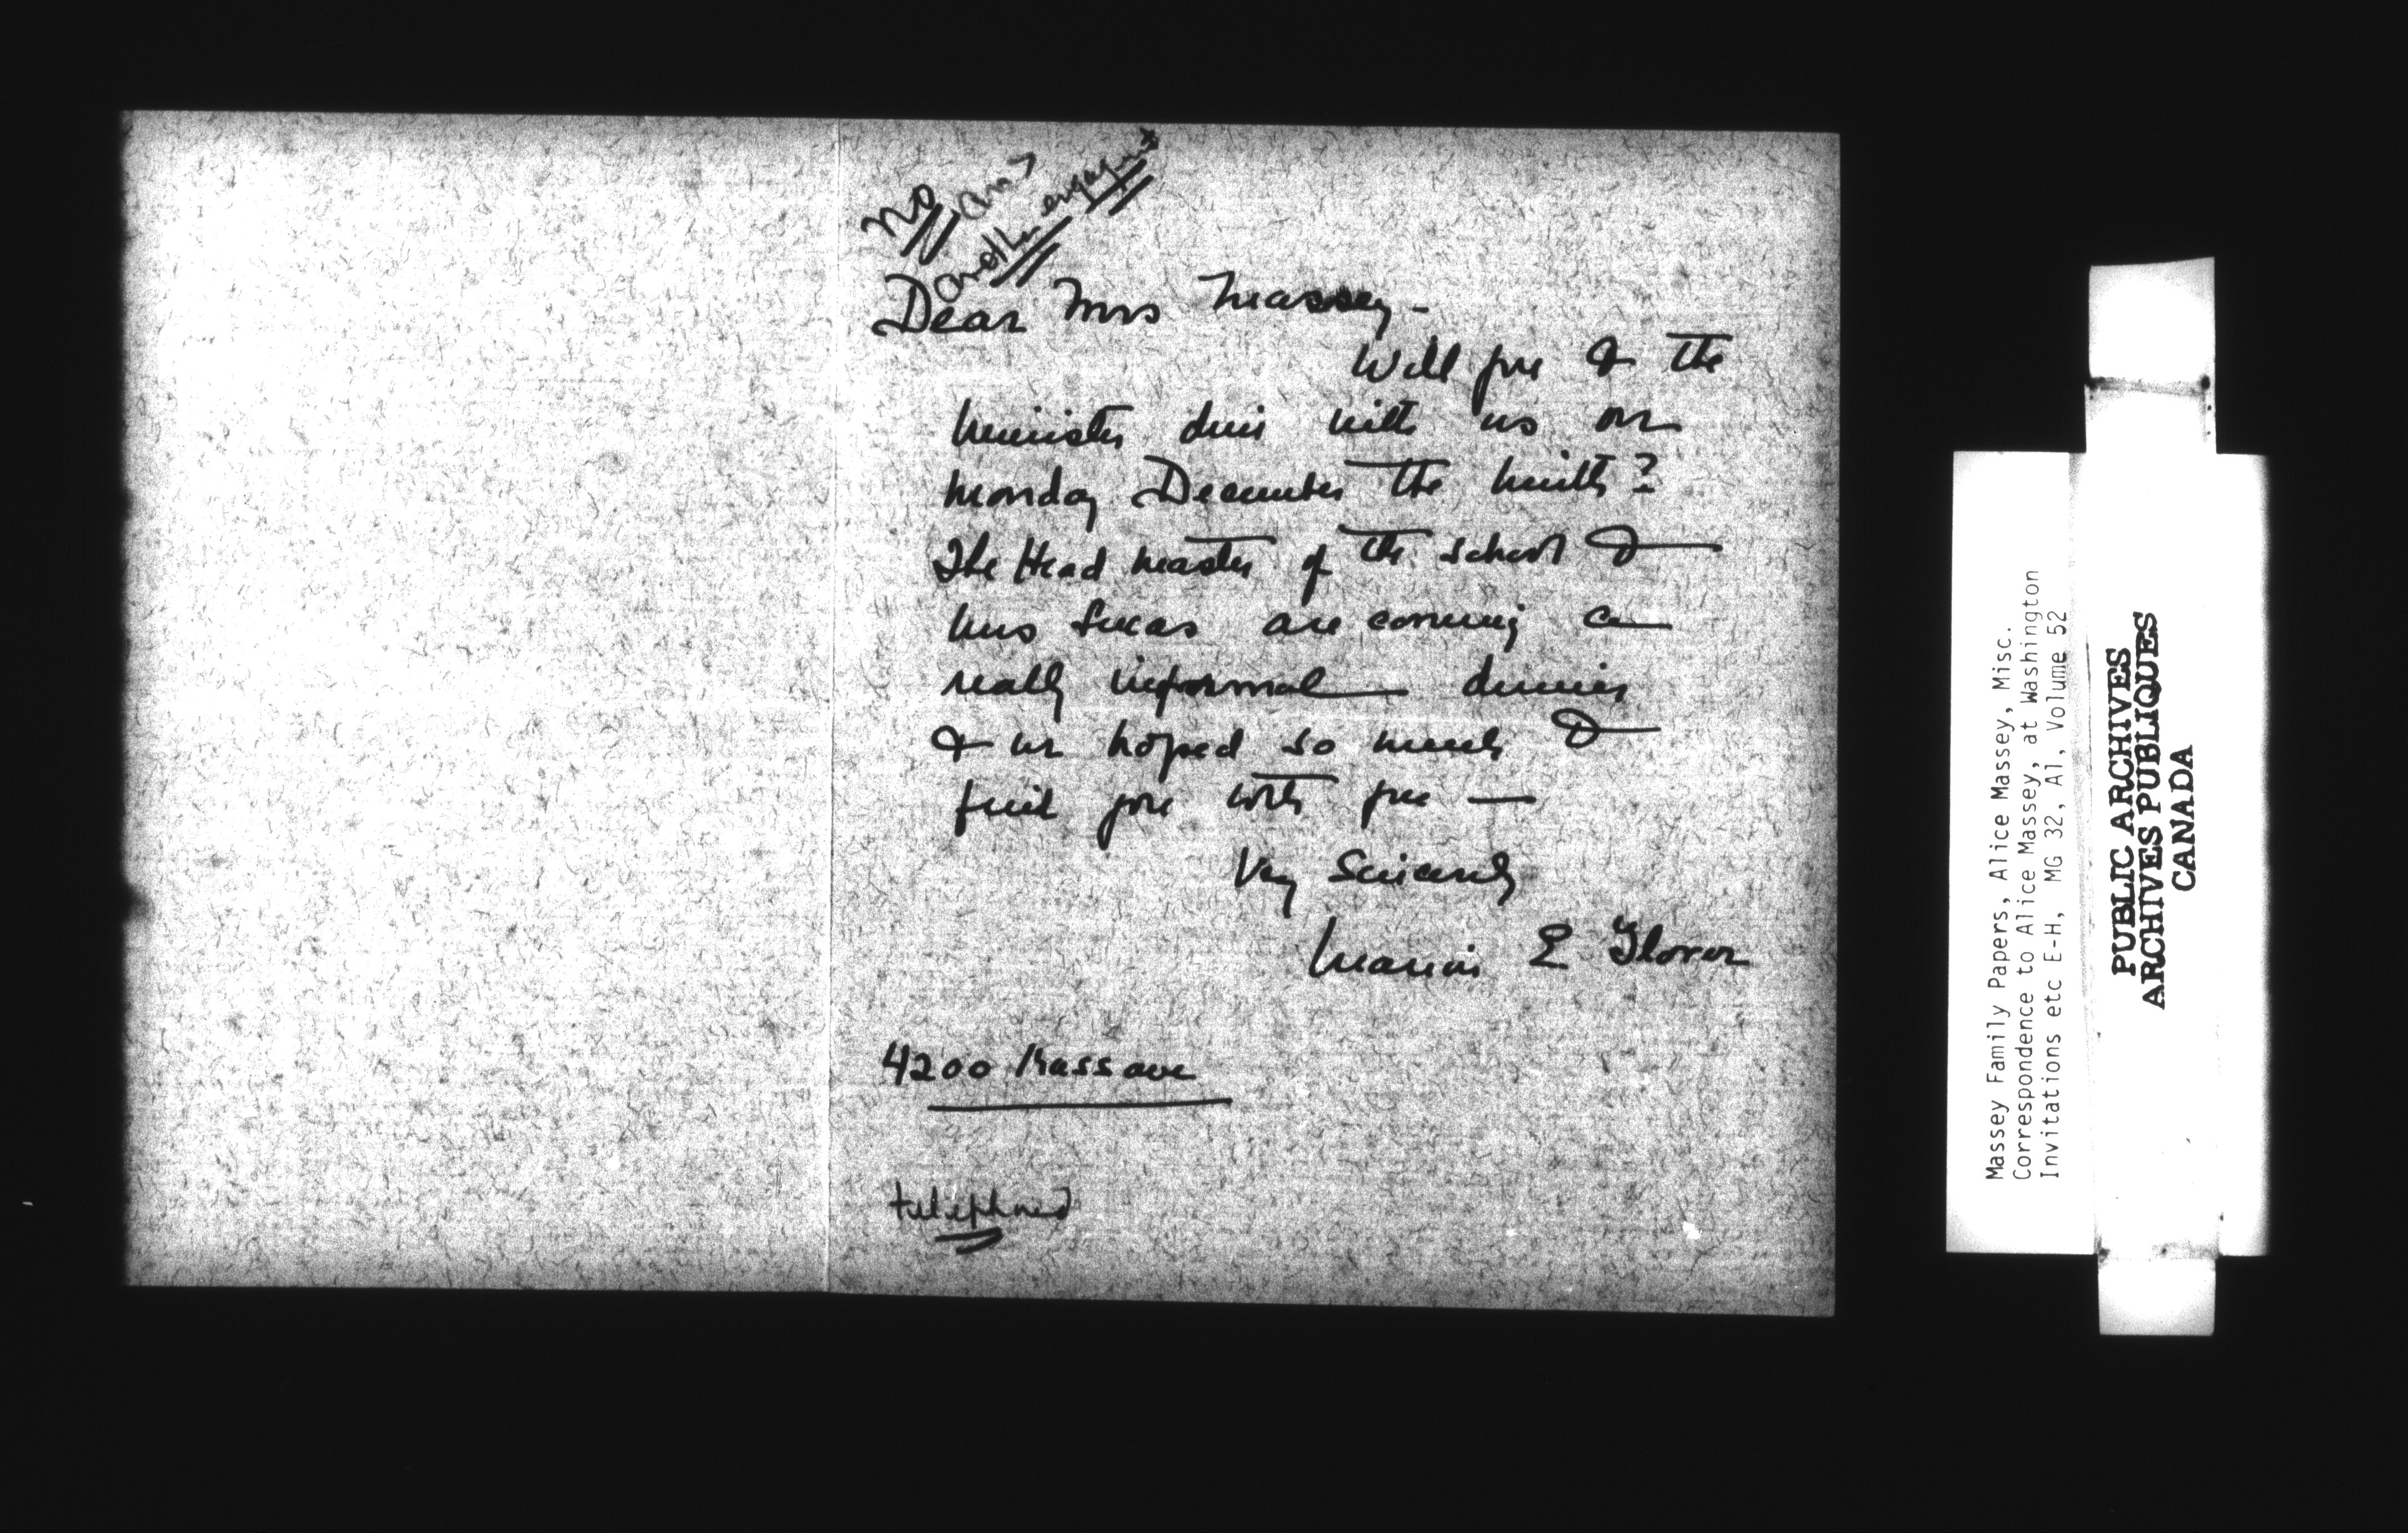 No ans
another engagement
Dear Mrs Massey -
Will you & the
Minister dine with us on
Monday December the ninth?
The Head Master of the school &
Mrs Lucas are coming a
really informal dinner
& we hoped so much to
find you both free —
Very Sincerely
E Glover
4200 Mass ave
telephoned
Massey Family Papers, Alice Massey, Misc.
Correspondence to Alice Massey, at Washington
Invitations etc E-H, MG 32, A1, Volume 52
PUBLIC ARCHIVES
ARCHIVES PUBLIQUES
CANADA